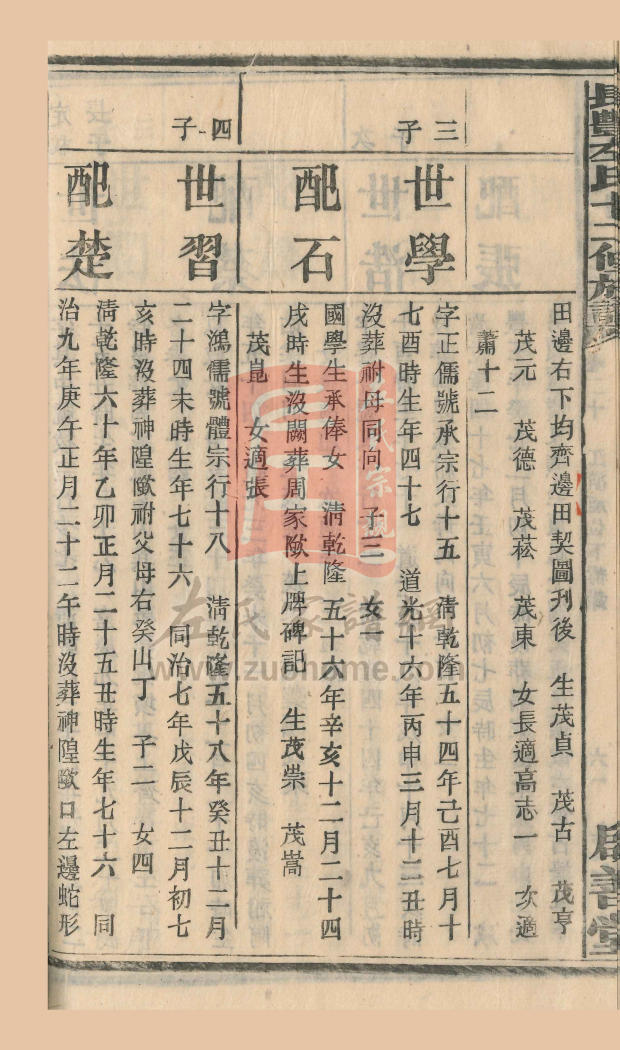 長豐左氏十二修族譜
田邊右下均齊邊田契圖刋後 生茂貞 茂古 茂亨
茂元 茂德 茂菘 茂東 女長適高志一 次適
蕭十二
三子
世學
字正儒號承宗行十五 淸乾隆五十四年己酉七月十
七酉時生年四十七 道光十六年丙申三月十二丑時
沒葬祔母同向 子三 女一
配石
國學生承俸女 淸乾隆五十六年辛亥十二月二十四
戌時生沒闕葬周家歘上牌碑記 生茂崇 茂嵩
茂崑 女適張
四子
世習
字鴻儒號體宗行十八 淸乾隆五十八年癸丑十二月
二十四未時生年七十六 同治七年戊辰十二月初七
亥時沒葬神隍歘祔父母右癸山丁 子二 女四
配楚
淸乾隆六十年乙卯正月二十五丑時生年七十六 同
治九年庚午正月二十二午時沒葬神隍歘口左邊蛇形
善堂
左氏家譜網
www.zuohome.com